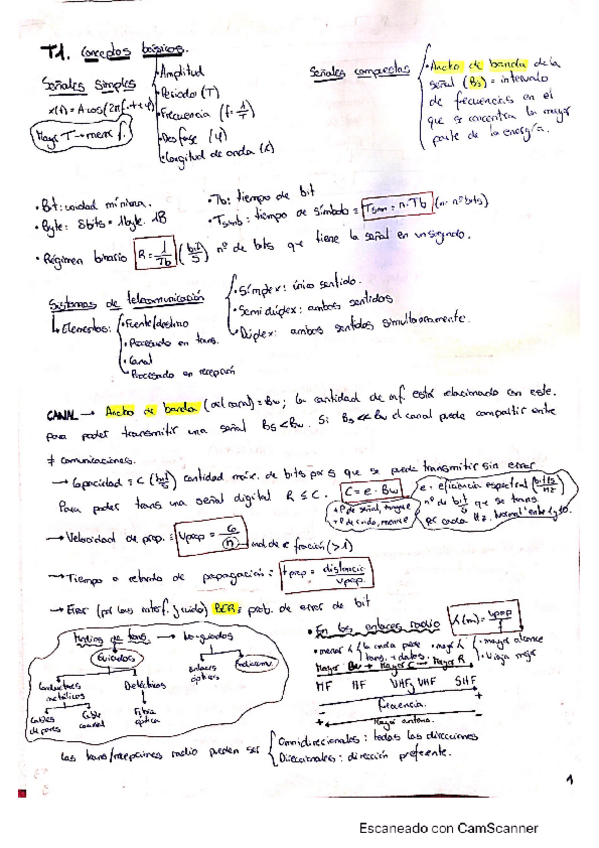 T1. Conceptos básicos.
Señales simples
x(t) = A cos(2πf·t+φ)
Mayor T → menor f.
Amplitud
Periodo (T)
Frecuencia (f = 1/T)
Desfase (φ)
Longitud de onda (λ)
Señales compuestas
Ancho de banda de la
señal (Bs) = intervalo
de frecuencias en el
que se concentra la mayor
parte de la energía.
• Bit: unidad mínima.
• Byte: 8bits = 1byte. 1B
• Tb: tiempo de bit
• Tsimb: tiempo de símbolo = Tsim = n·Tb (n: nº bits)
• Régimen binario R = 1/Tb (bit/s) nº de bits que tiene la señal en un segundo.
Sistemas de telecomunicación
Elementos:
• Fuente/destino
• Procesado en trans.
• Canal
• Procesado en recepción
• Símplex: único sentido.
• Semidúplex: ambos sentidos
• Dúplex: ambos sentidos simultáneamente.
CANAL → Ancho de banda (del canal) = Bw; la cantidad de inf. está relacionado con este.
para poder transmitir una señal Bs < Bw. Si Bs << Bw el canal puede compartir entre
≠ comunicaciones.
→ Capacidad = C (bit/s) cantidad máx. de bits por s que se puede transmitir sin error
Para poder trans una señal digital R ≤ C.
C = e · Bw
e: eficiencia espectral (bits/Hz)
nº de bit que se trans.
por cada Hz.
→ Velocidad de prop. = Vprop = c0/n → ind. de refracción (>1)
→ Tiempo o retardo de propagación = tprop = distancia/vprop
→ Error (por las interf. y ruido) BER = prob. de error de bit
Medios de trans. → No guiados
Guiados
Enlaces ópticos
Radiocom.
Conductores metálicos
Dieléctricos
Cables de pares
Cable coaxial
Fibra óptica
• En los enlaces radio λ(m) = vprop/f
• menor λ
la onda puede
trans. + datos.
• mayor λ
• mayor alcance
• Viaja mejor
Mayor Bw → Mayor C → Mayor R
MF HF VHF UHF SHF
- +
frecuencia.
+ -
Mayor antena.
Las trans/recepciones radio pueden ser
Omnidireccionales: todas las direcciones
Direccionales: dirección preferente.
1
Escaneado con CamScanner